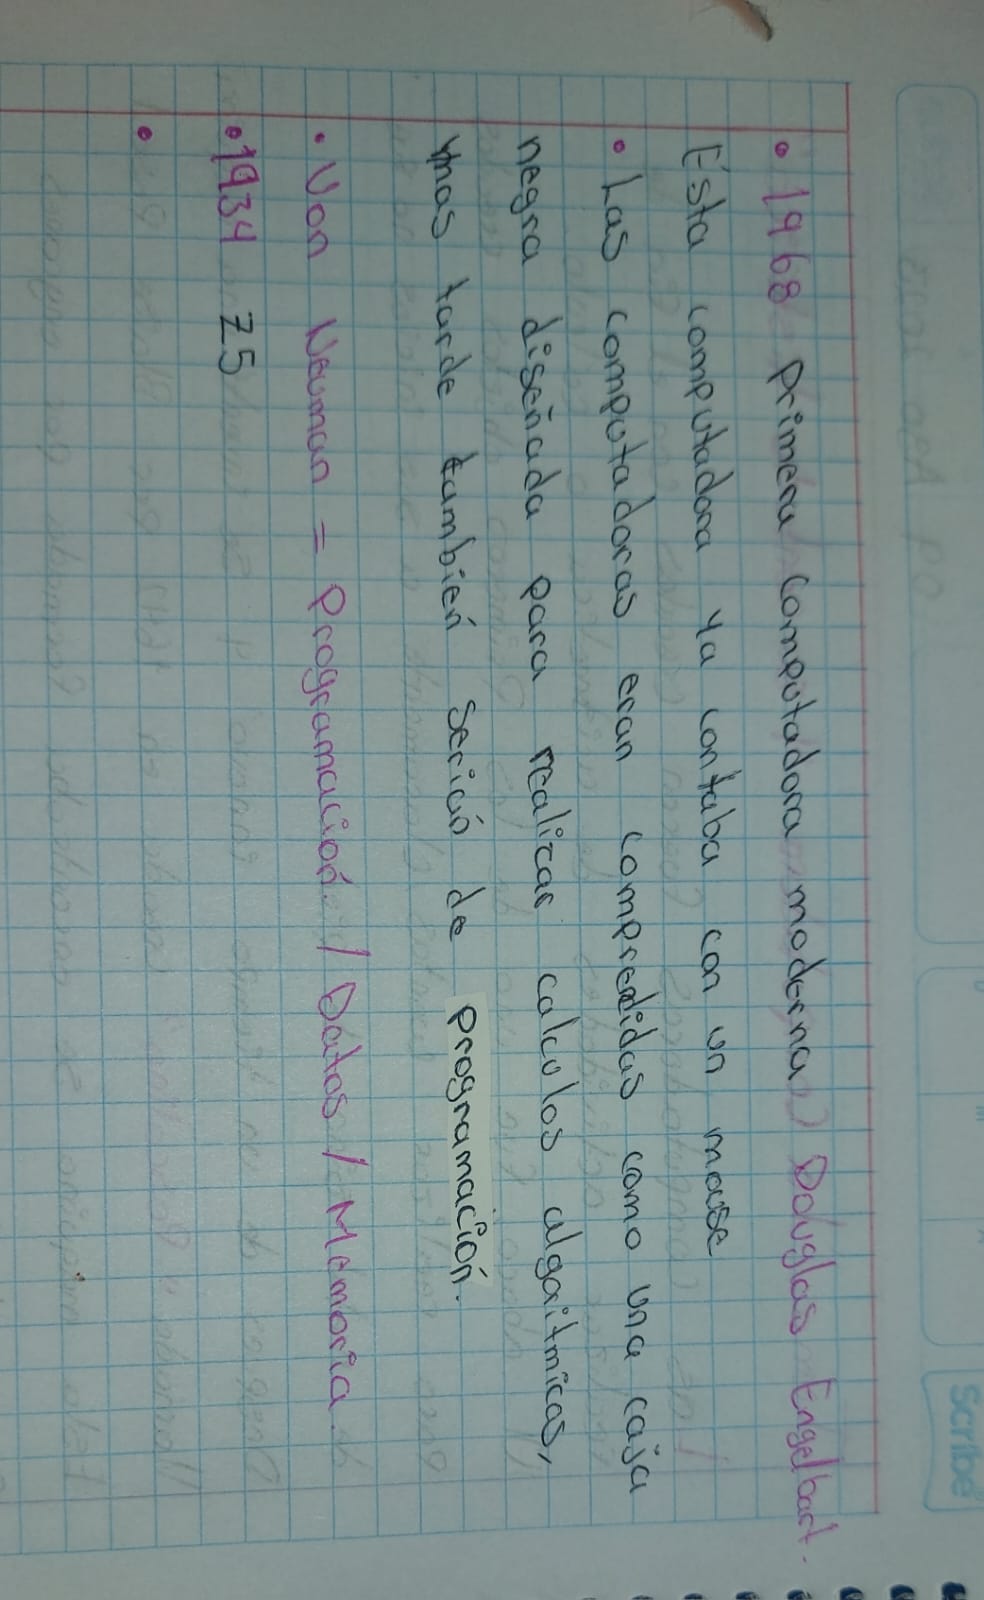 Scribe
• 1968 Primera computadora moderna Douglas Engelbart.
Esta computadora ya contaba con un mouse
• Las computadoras eran compredidas como una caja
negra diseñada para realizar calculos algaitmicas,
mas tarde también serián de programación.
• Von Neuman = Programación / Datos / Memoria
• 1934 Z5
•